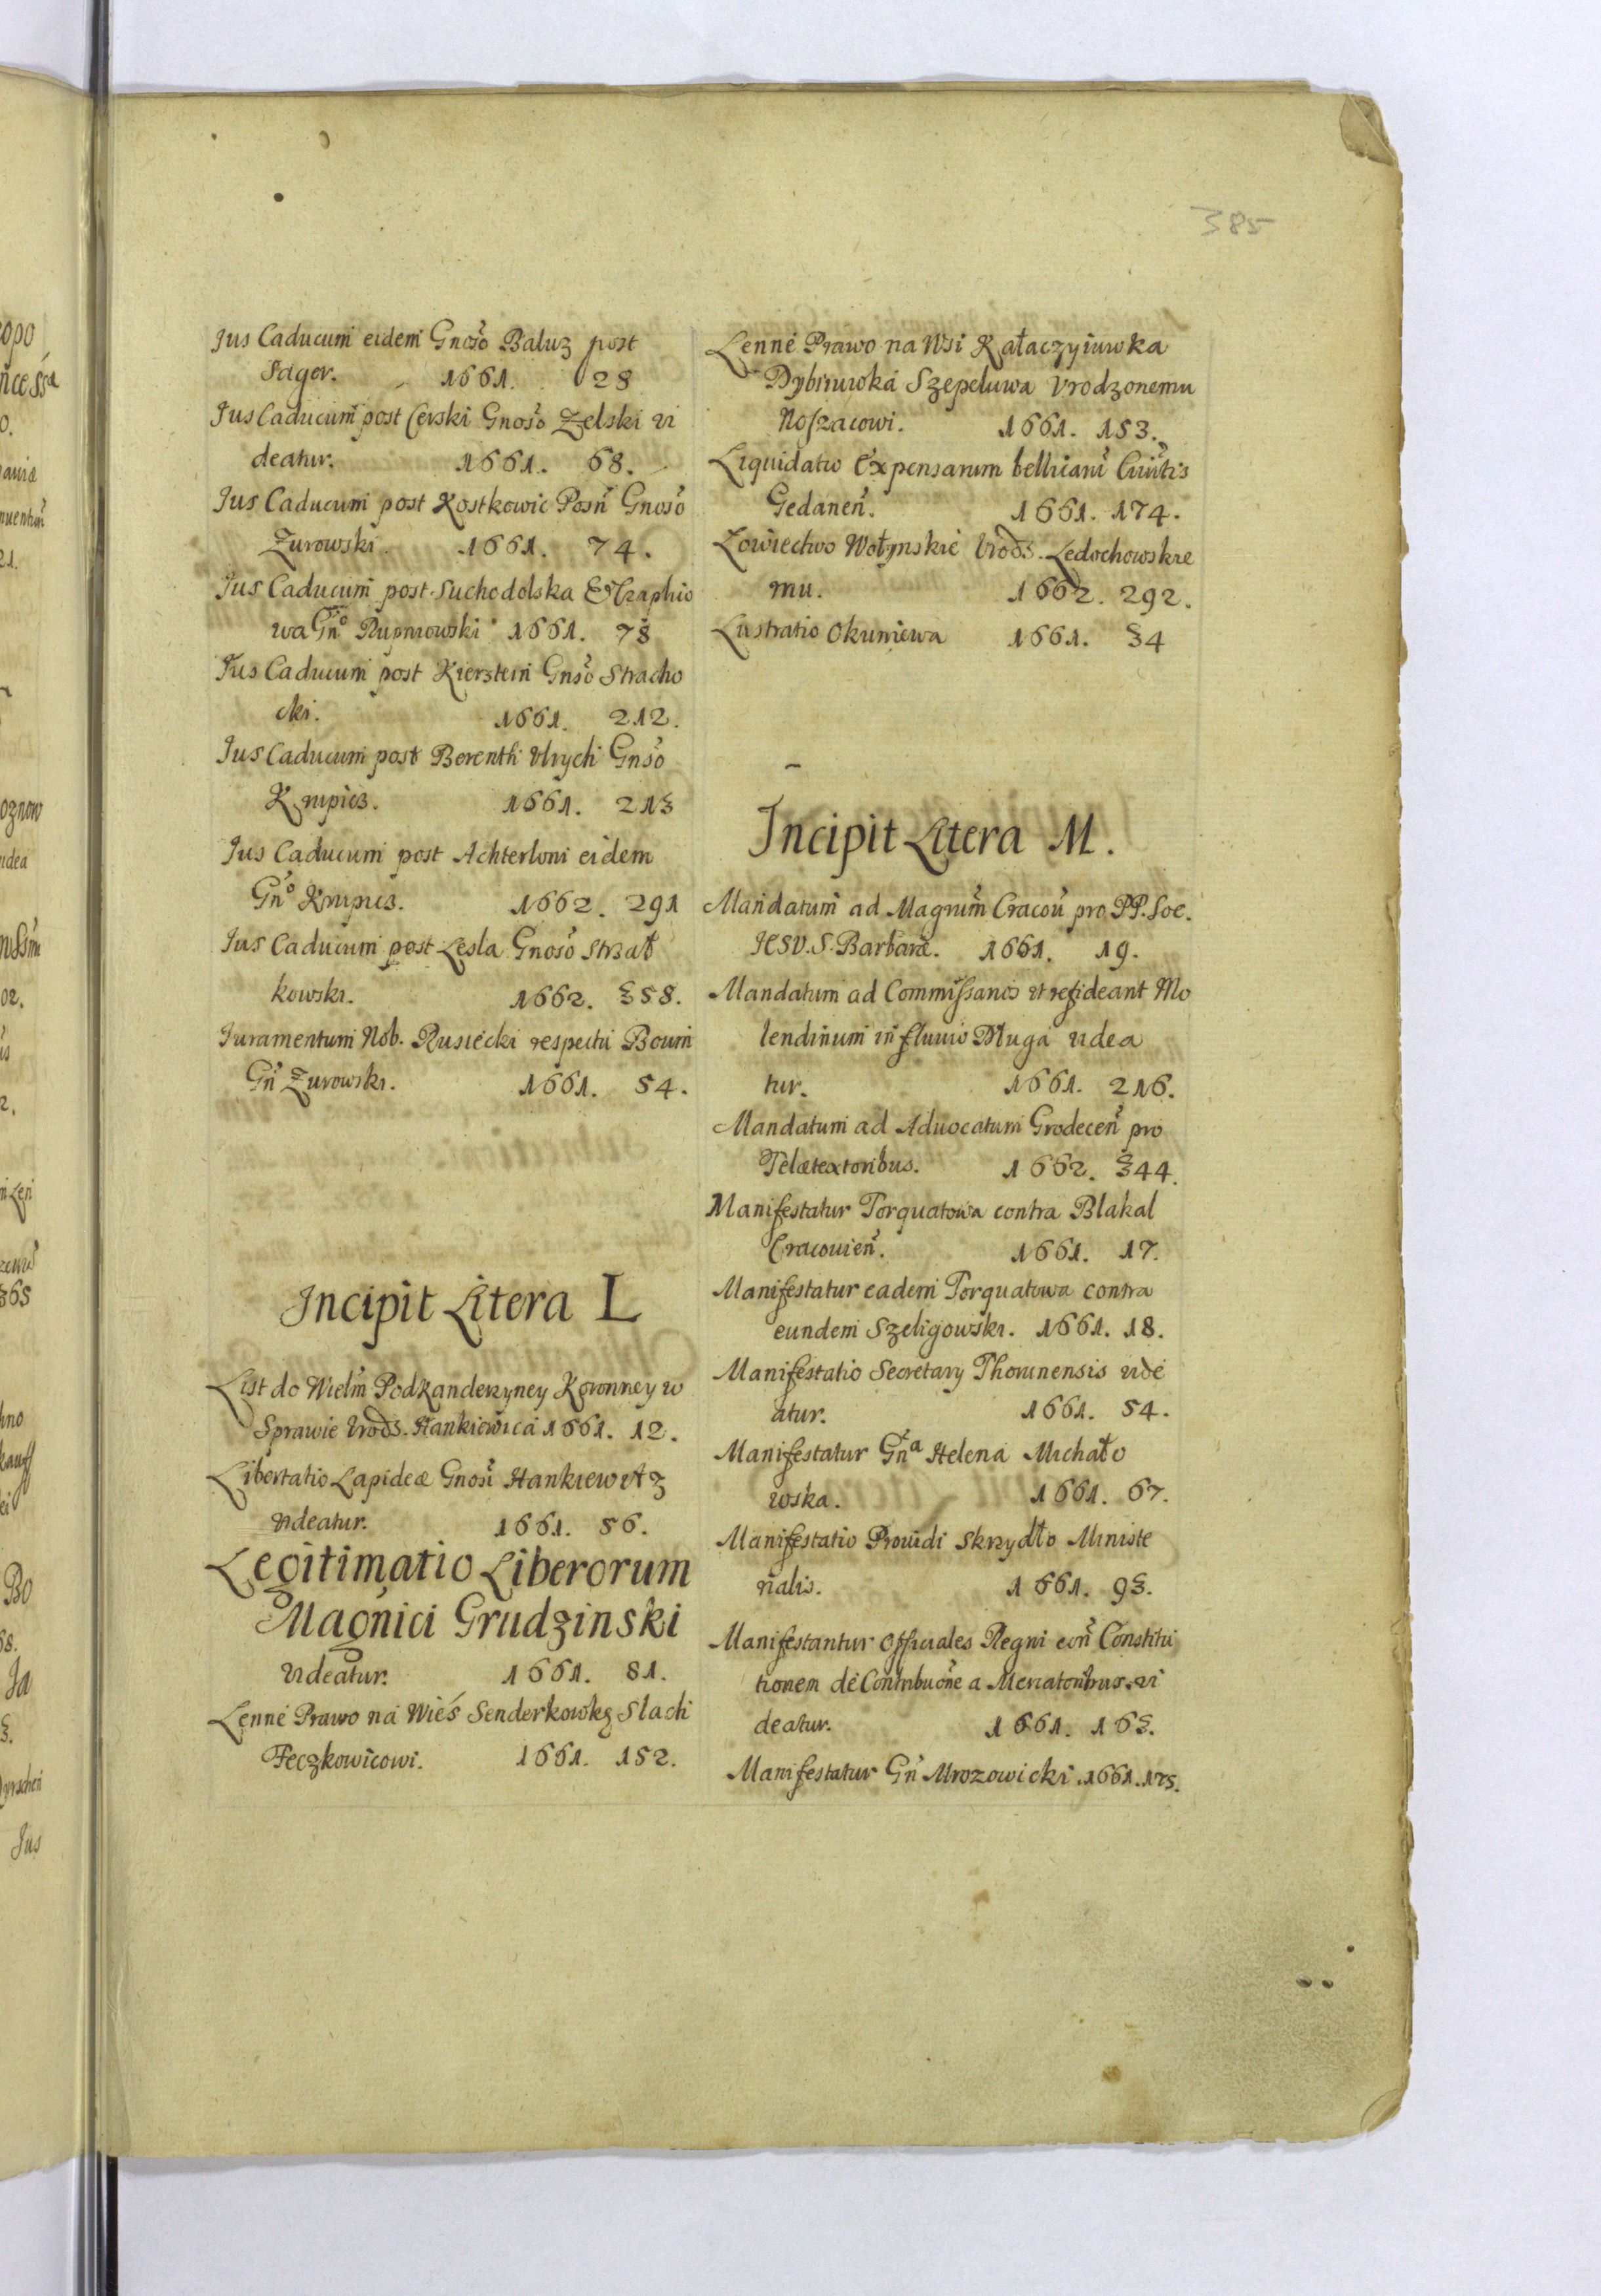 385
Jus Caducum eidem Gnoso Baluz post
Sager. 1661. 28
Jus Caducum post Cerski Gnoso Zelski vi
deatur. 1661. 68.
Jus Caducum post Kostkowic Posn Gnoso
Zurowski. 1661. 74.
Jus Caducum post Suchodolska &
wa Gno Rupniowski 1661. 78
Jus Caducum post Kierstein Gnso Stracho
cki. 1661. 212.
Jus Caducum post Berenth Vlrych Gnso
Krupics. 1661. 213
Jus Caducum post Achterloni eidem
Gno Krupics. 1662. 291
Jus Caducum post Lesla Gnoso Strzał
kowski. 1662. 358.
Juramentum Nob. Rusiecki respectu Boum
Gn Zurowski. 1661. 54.
Incipit Litera L
List do Wielm Podkanderzyney Koronney w
Sprawie Vrodz. Hankiewica 1661. 12.
Libertatio Lapideæ Gnosi Hankiewitz
videatur. 1661. 56.
Legitimatio Liberorum
Magnici Grudzinski
videatur. 1661. 81.
Lenné Prawo ná Wieś Senderkowkę Slach
Feczkowicowi. 1661. 152.
Lenné Prawo na Wsi Kałaczyiuwka
Dybruwká Szepeluwa Vrodzonemu
Noszacowi. 1661. 153.
Liquidatio Expensarum bellicarum Ciuitis
Gedanen. 1661. 174.
Łowiectwo Wołynskié Vrodz. Ledochowskie
mu. 1662. 292.
Lustratio Okuniewa 1661. 34
Incipit Litera M.
Mandatum ad Magrum Cracou pro PP. Soc.
JESV. S. Barbaræ. 1661. 19.
Mandatum ad Commissarios vt resideant Mo
lendinum in fluuio Długa videa
tur. 1661. 216.
Mandatum ad Aduocatum Grodecen pro
Telætextoribus. 1662. 344.
Manifestatur Torquatowa contra Blakal
Cracouien. 1661. 17.
Manifestatur eadem Torquatowa contra
eundem Szeligowski. 1661. 18.
Manifestatio Secretary Thorunensis vide
atur. 1661. 54.
Manifestatur Gna Helena Michało
wska. 1661. 67.
Manifestatio Prouidi Skrzydło Ministe
rialis. 1661. 93.
Manifestantur Officiales Regni con Constitu
tionem de Contribuone a Mercatoribus. vi
deatur. 1661. 163.
Manifestatur Gn Mrozowicki. 1661. 175.